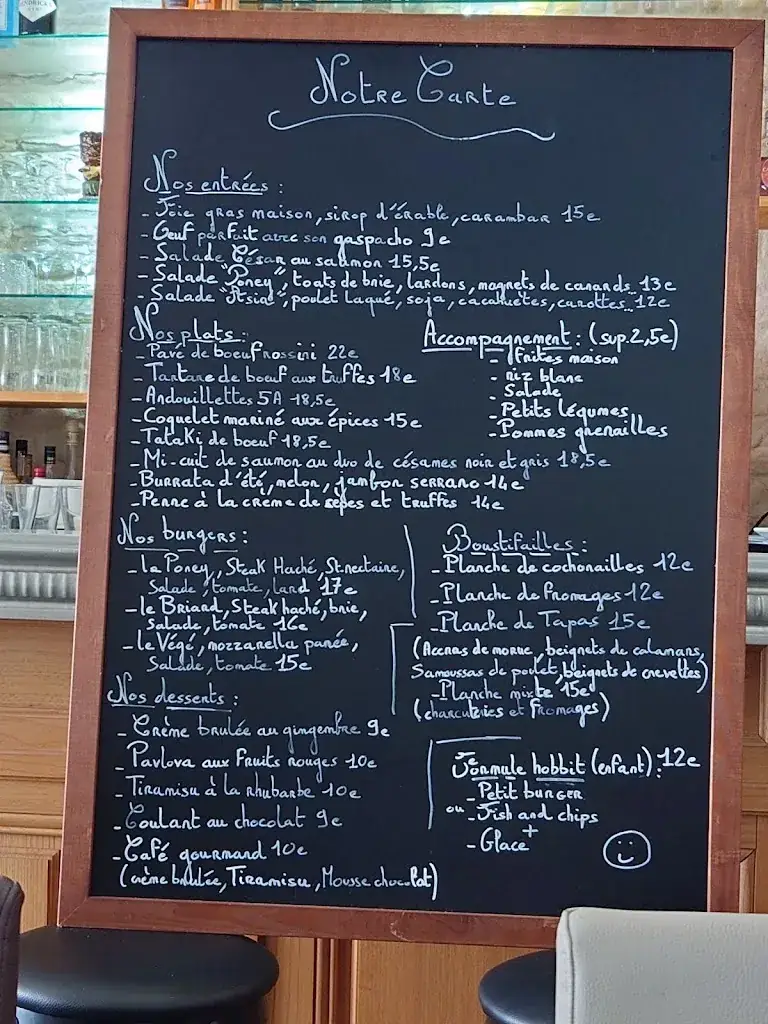 Notre Carte
Nos entrées :
- Foie gras maison, sirop d'érable, carambar 15e
- Oeuf parfait avec son gaspacho 9e
- Salade César au saumon 15,5e
- Salade "Poney", toats de brie, lardons, magnets de canards 13e
- Salade "Asia", poulet laqué, soja, cacahuetes, carottes 12e
Nos plats :
- Pavé de boeuf rossini 22e
- Tartare de boeuf aux truffes 18e
- Andouillettes 5A 18,5e
- Coquelet mariné aux épices 15e
- Tataki de boeuf 18,5e
- Mi-cuit de saumon au duo de césames noir et gris 18,5e
- Burrata d'été, melon, jambon serrano 14e
- Penne à la crème de sèpes et truffes 14e
Accompagnement : (sup. 2,5e)
- frites maison
- riz blanc
- Salade
- Petits légumes
- Pommes grenailles
Nos burgers :
- la Poney, Steak Haché, St. nectaire,
Salade, tomate, lard 17e
- le Briard, Steak haché, brie,
salade, tomate 16e
- le Végé, mozzarella panée,
Salade, tomate 15e
Boustifailles :
- Planche de cochonailles 12e
- Planche de fromages 12e
- Planche de Tapas 15e
(Accras de morue, beignets de calamars,
Samoussas de poulet, beignets de crevettes)
- Planche mixte 15e
(charcuteries et fromages)
Nos desserts :
- Crème brulée au gingembre 9e
- Pavlova aux fruits rouges 10e
- Tiramisu à la rhubarbe 10e
- Coulant au chocolat 9e
- Café gourmand 10e
(crème brulée, Tiramisu, Mousse chocolat)
Formule hobbit (enfant) : 12e
- Petit burger
ou - Fish and chips
+
- Glace